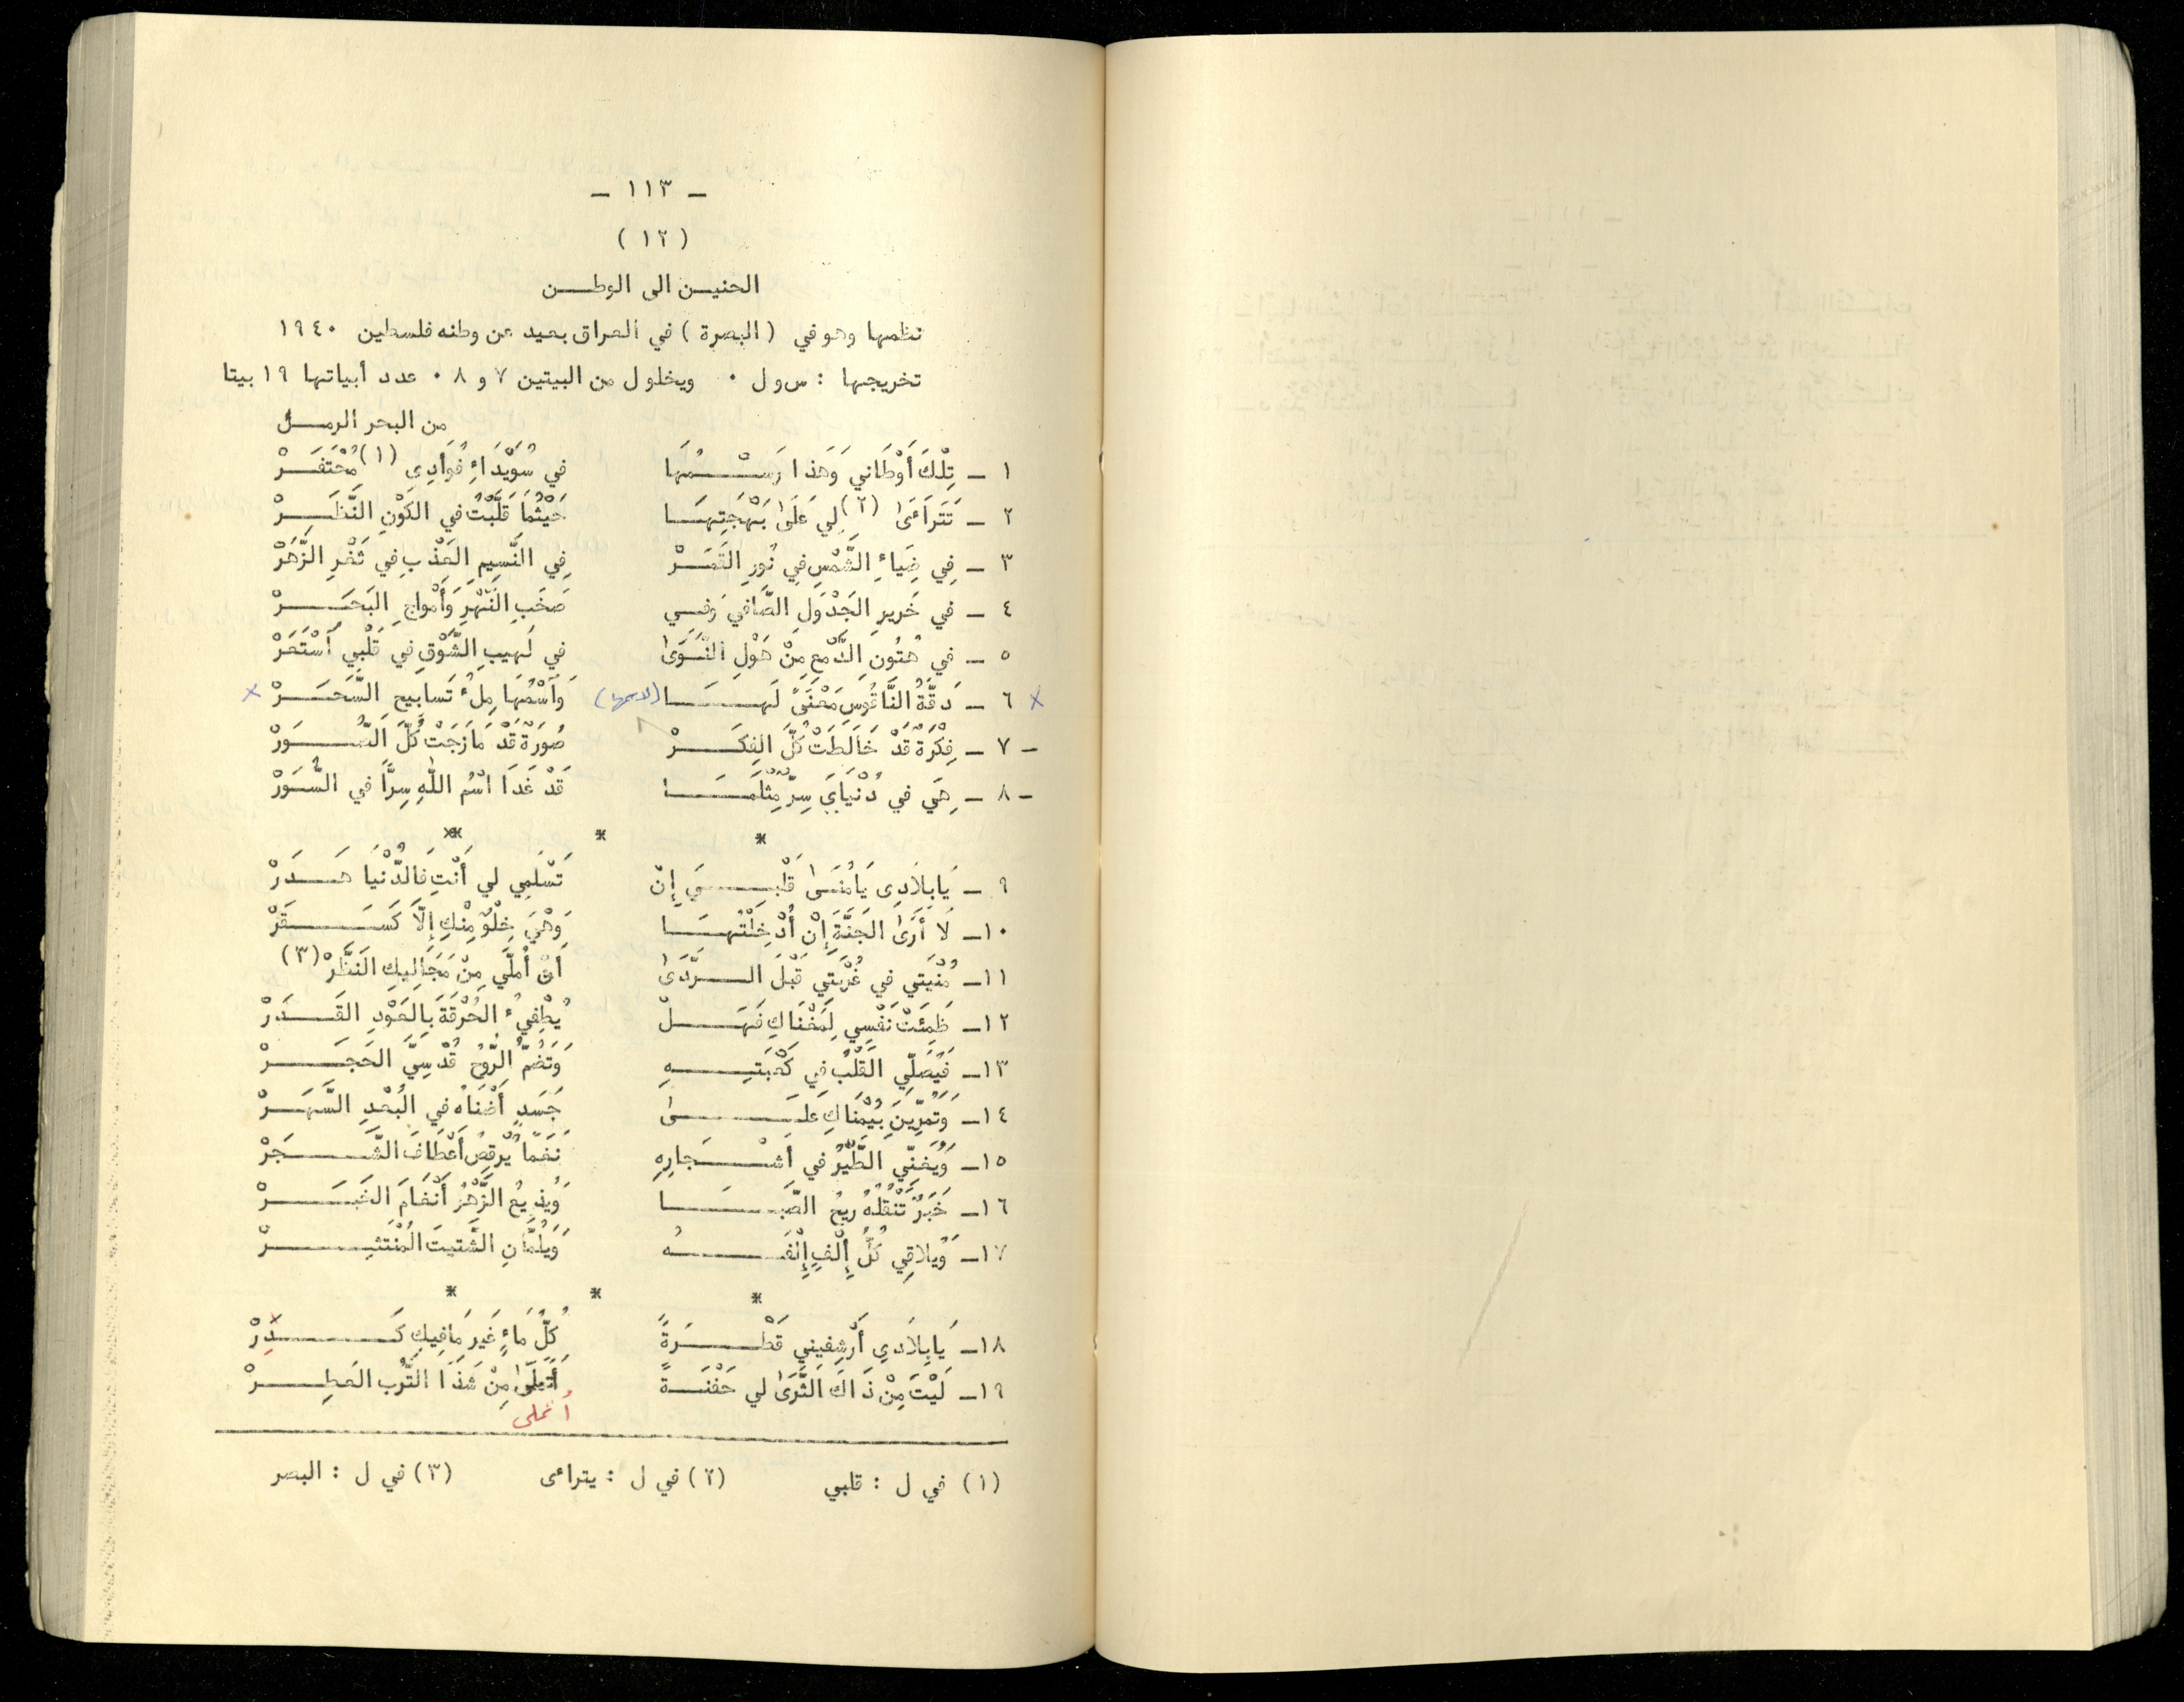 ـ ١١٣ ـ
( ١٢ )
الحنيـن الى الوطـن
نظمها وهو في ( البصرة ) في العراق بعيد عن وطنه فلسطين ١٩٤٠
تخريجها : س و ل ٠ ويخلو ل من البيتين ٧ و ٨ ٠ عدد أبياتها ١٩ بيتا
من البحر الرمـل
١ ـ تِلْكَ أَوْطَاني وَهَذا رَسْـمُهَا في سُوَيْدَاءِ فُوَأدِى (١) مُحْتَفَـرْ
٢ ـ تَتَراَءَىٰ (٢) لِي عَلَىٰ بَهْجَتِهَـا حَيْثُمَا قَلَّبْتُ في الكَوْنِ النَّظَـرْ
٣ ـ فِي ضِيَاءِ الشَّمْسِ فِي نُورِ القَمَـرْ فِي النَّسِيمِ العَذْبِ في ثَغْرِ الزَّهَرْ
٤ ـ في خَريرِ الجَدْوَلِ الصَّافي وَفـي صَخَبِ النَّهْرِ وَأَمْواجِ البَحَـرْ
٥ ـ في هُتُونِ الدَّمعِ مِنْ هَوْلِ النَّـوَىٰ في لَهيبِ الشَّوْقِ في قَلْبِي اَسْتَعَرْ
× ٦ ـ دَقَّةُ النَّاقُوسِ مَعْنَىً لَهَـا (لاسمها) وَاَسْمُهَا مِلُْء تَسابيح السَّحَـرْ ×
ـ ٧ ـ فِكْرَةٌ قَدْ خَالَطَتْ كُلَّ الفِكَـرْ صُورَةٌ قَدْ مَازَجَتْ كُلَّ الصُّـوَرْ
ـ ٨ ـ هِيَ في دُنْيَايَ سِرٌّ مِثْلَمَـا قَدْ غَدَا اسْمُ اللّٰهِ سِرَّاً في السُّـوَرْ
* * **
٩ ـ يَابِلَادِى يَامُنَـىٰ قَلْبِـيَ إِنْ تَسْلَمِي لي أَنْتِ فَالدُّنْيَا هَـدَرْ
١٠ـ لَا أَرَىٰ الجَنَّةَ إِنْ أُدْخِلْتُهَـا وَهْيَ خِلْوٌ مِنْكِ إلّاَ كَسَـقَرْ
١١ـ مُنْيَتي في غُرْبَتي قَبْلَ الـرَّدَىٰ أنْ أُمَلَّي مِنْ مَجَاليكِ النَّظَرْ (٣)
١٢ـ ظَمِئَتْ نَفْسِي لِمَغْنَاكِ فَهَـلْ يُطْفِيُء الحُرْقَةَ بِالعَوْدِ القَـدَرْ
١٣ـ فَيُصَلّي القَلْبُ في كَعْبَتِـهِ وَتَضُمُّ الرُّوحُ قُدْسِيَّ الحَجَـرْ
١٤ـ وَتَمُرِّينَ بِيُمْنَاكِ عَلَـىٰ جَسَدٍ أَضْنَاهُ في البُعْدِ السَّهَـرْ
١٥ـ وَيُغنّي الطَّيْرُ في أَشْـجَارِهِ نَغَماً يُرْقِصُ أَعْطَافَ الشَّـجَرْ
١٦ـ خَبَرٌ تَنْقُلُهُ رِيحُ الصَّبَـا وَيُذِيعُ الزَّهْرُ أَنْغَامَ الخَبَـرْ
١٧ـ وَيُلاقِي كُلُّ إِلْفٍ إِلْفَـهُ وَيَلُمَّانِ الشَّتيتَ المُنْتَثِـرْ
* * *
١٨ـ يَابِلَادِي أَرْشِفيني قَطْـرَةً كُلُّ مَاءٍ غَيرَ مَافِيكِ كَـدِرْ
١٩ـ لَيْتَ مِنْ ذَاكَ الثَّرَىٰ لي حَفْنَـةً أَتَمَلّىٰ مِنْ شَذَا التُّرْبِ العَطِـرْ
أتملى
(١) في ل : قلبي (٢) في ل : يتراءى (٣) في ل : البصر